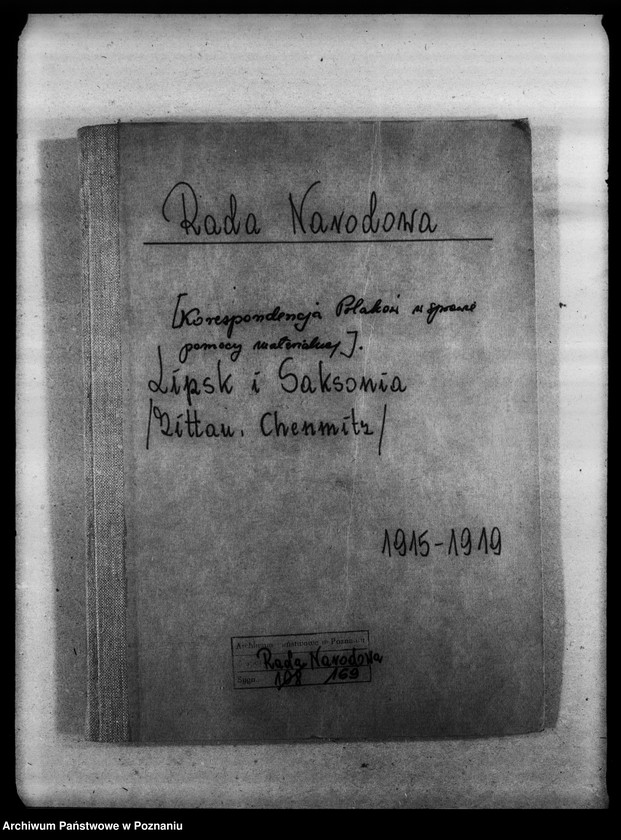 Rada Narodowa
[Korespondencja Polaków w sprawie
pomocy materialnej].
Lipsk i Saksonia
/Zittau, Chemnitz/
1915-1919
Archiwum Państwowe w Poznaniu
Rada Narodowa
Sygn. 108 169
Archiwum Państwowe w Poznaniu